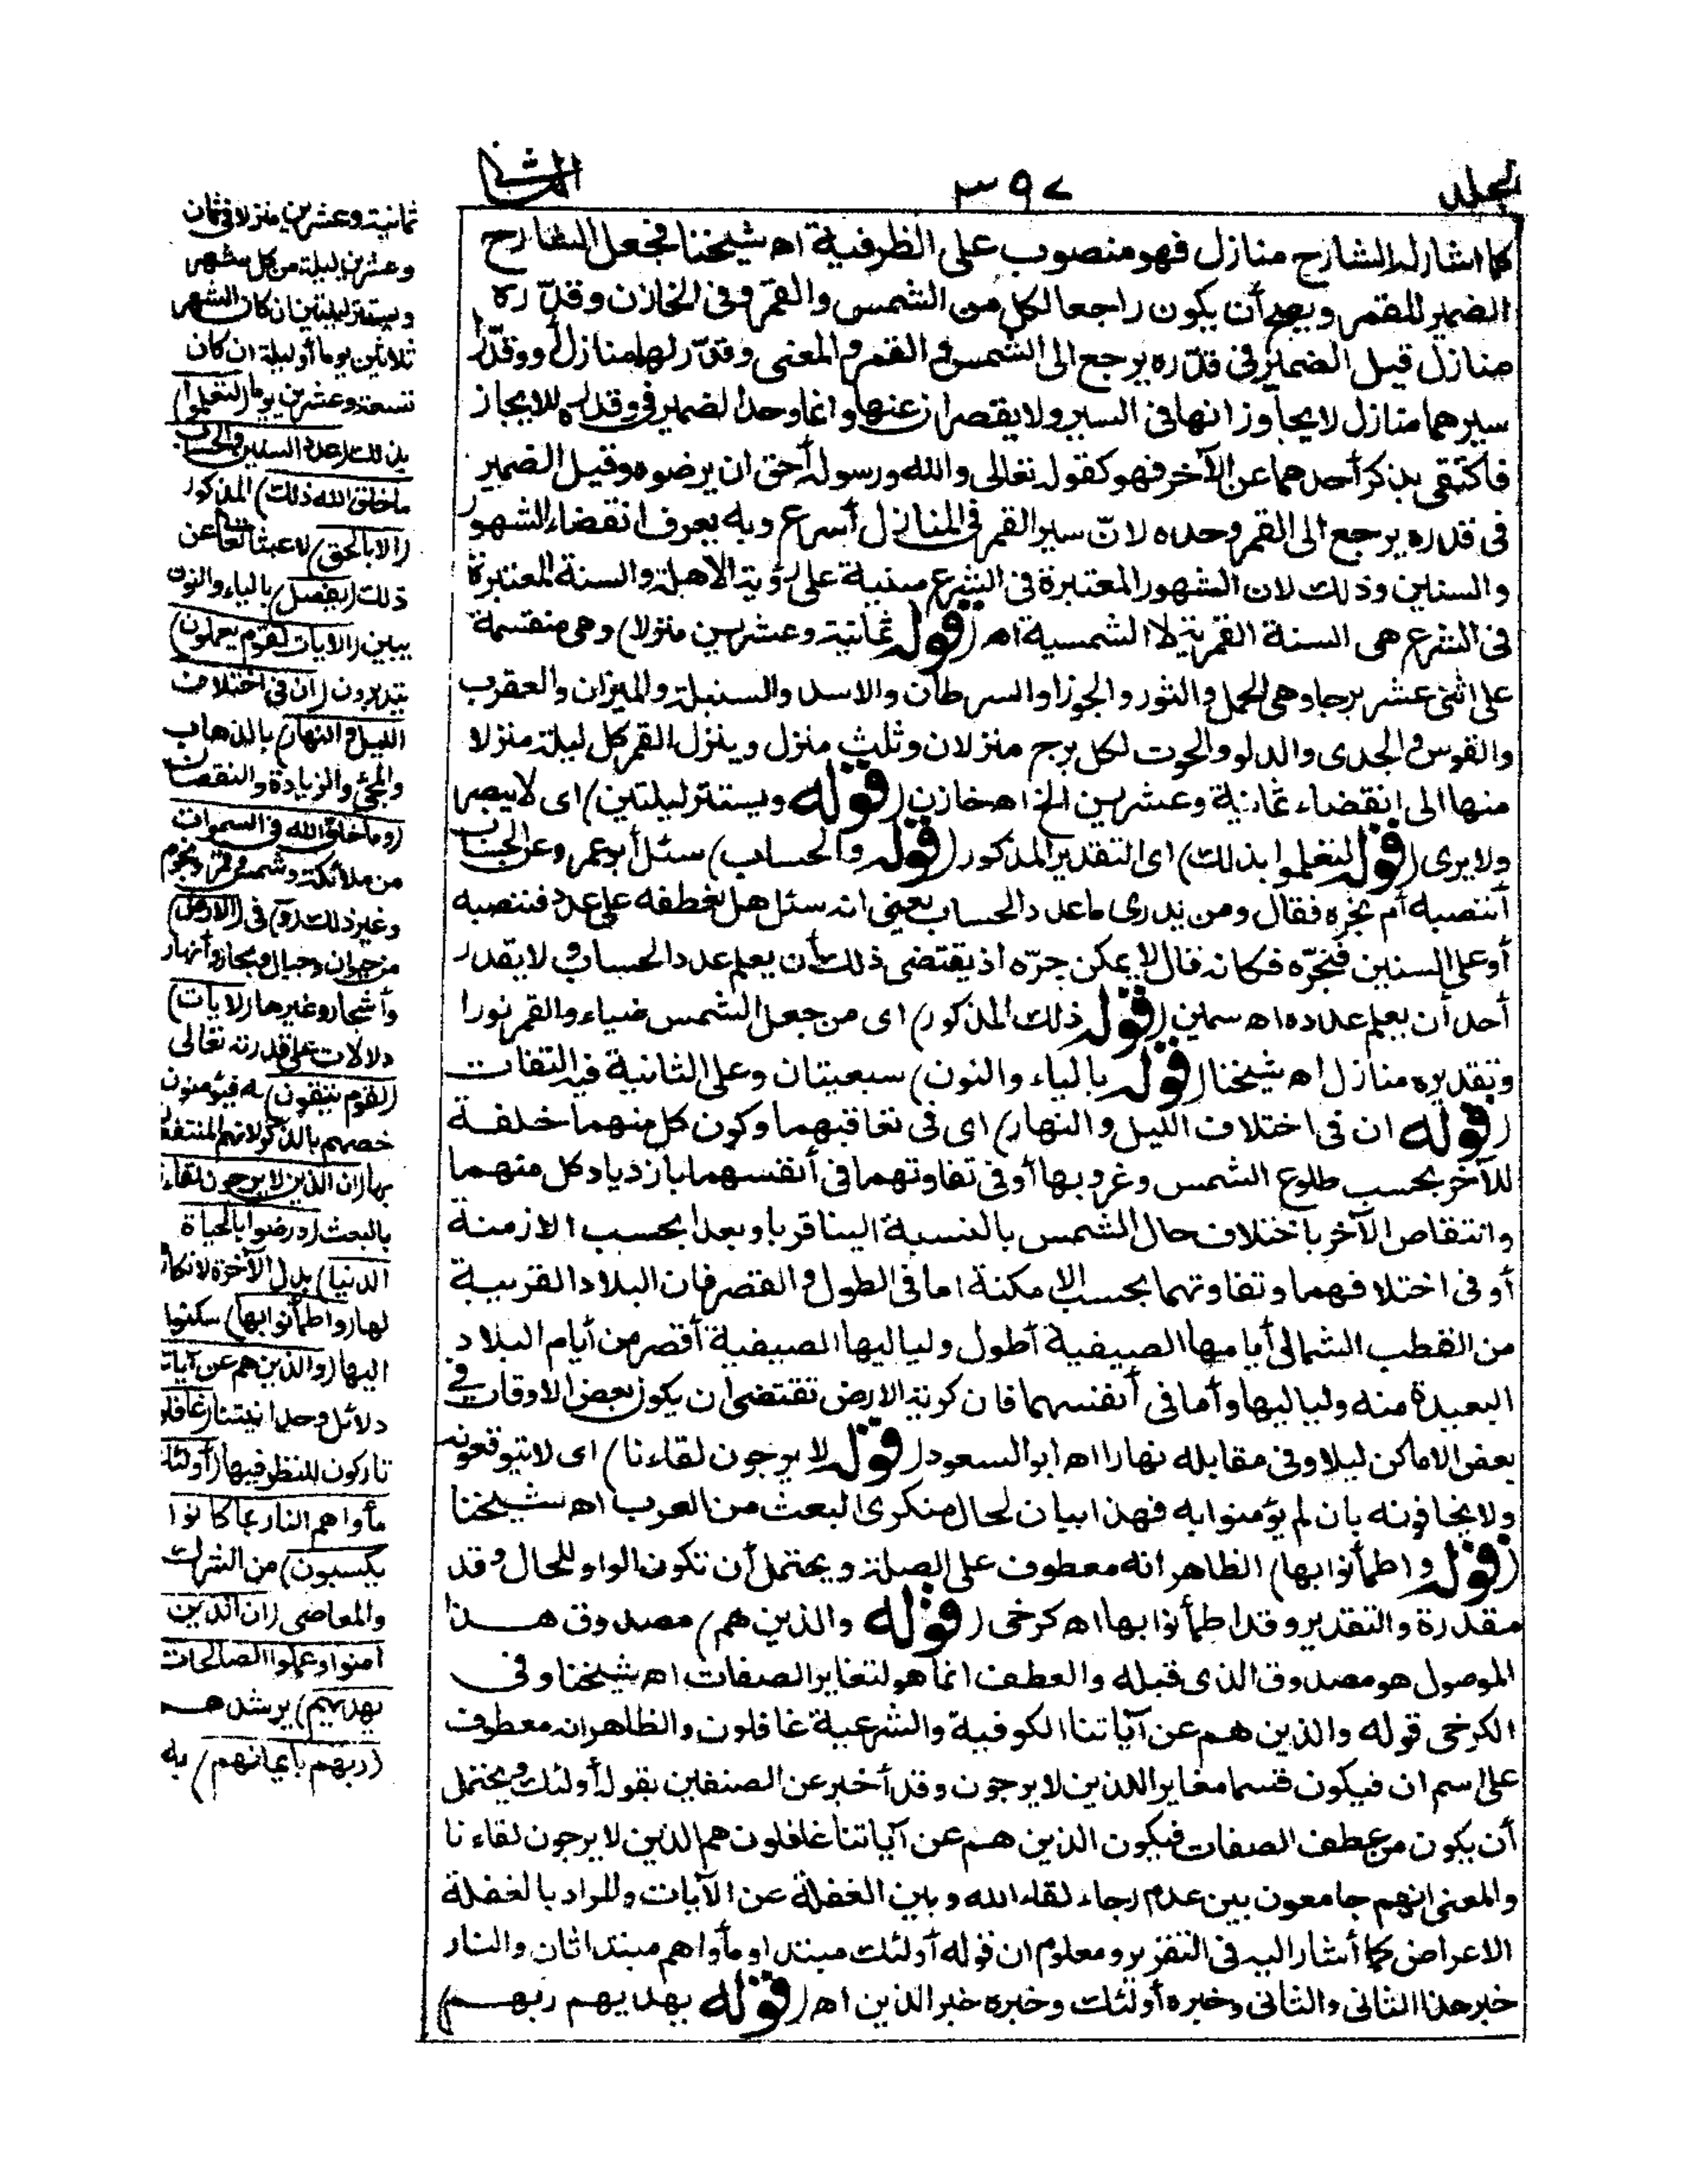 الجلد
٣٩٧
الثانى
كما اشار له الشارح منازل فهو منصوب على الظرفية اه شيخنا فجعل الشارح
الضمير للقمر ويصح أن يكون راجعا لكل من الشمس والقمر وفى الخازن وقدّره
منازل قيل الضمير فى قدّره يرجع الى الشمس والقمر والمعنى وقدّر لهما منازل أو وقدّر
سيرهما منازل لا يجاوزانها فى السير ولا يقصران عنها وانما وحد الضمير فى وقدره للايجاز
فاكتفى بذكر أحدهما عن الآخر فهو كقوله تعالى والله ورسوله أحق ان يرضوه وقيل الضمير
فى قدره يرجع الى القمر وحده لانّ سير القمر فى المنازل أسرع وبه يعرف انقضاء الشهور
والسنين وذلك لان الشهور المعتبرة فى الشرع مبنية على رؤية الاهلة والسنة المعتبرة
فى الشرع هى السنة القمرية لا الشمسية اه (قوله ثمانية وعشرين منزلا) وهى منقسمة
على اثنى عشر برجا وهى الحمل والثور والجوزا والسرطان والاسد والسنبلة والميزان والعقرب
والقوس والجدى والدلو والحوت لكل برج منزلان وثلث منزل وينزل القمر كل ليلة منزلا
منها الى انقضاء ثمانية وعشرين الخ اه خازن (قوله ويستتر ليلتين) اى لا يبصر
ولا يرى (قوله لتعلموا بذلك) اى التقدير المذكور (قوله والحساب) سئل أبو عمرو عن الحساب
أننصبه أم نجره فقال ومن يدرى ما عدد الحساب يعنى انه سئل هل نعطفه على عدد فننصبه
أو على السنين فنجرّه فكانه قال لا يمكن جرّه اذ يقتضى ذلك أن يعلم عدد الحساب ولا يقدر
أحد أن يعلم عدده اه سمين (قوله ذلك المذكور) اى من جعل الشمس ضياء والقمر نورا
وتقديره منازل اه شيخنا (قوله بالياء والنون) سبعيتان وعلى الثانية فيه التفات
(قوله ان فى اختلاف الليل والنهار) اى فى تعاقبهما وكون كل منهما خلفة
للآخر بحسب طلوع الشمس وغروبها أو فى تفاوتهما فى أنفسهما بازدياد كل منهما
وانتقاص الآخر باختلاف حال الشمس بالنسبة الينا قربا وبعدا بحسب الازمنة
أو فى اختلافهما وتفاوتهما بحسب الامكنة اما فى الطول والقصر فان البلاد القريبة
من القطب الشمالى أيامها الصيفية أطول ولياليها الصيفية أقصر من أيام البلاد
البعيدة منه ولياليها وأما فى أنفسهما فان كرية الارض تقتضى ان يكون بعض الاوقات فى
بعض الاماكن ليلا وفى مقابله نهارا اه ابو السعود (قوله لا يرجون لقاءنا) اى لا يتوقعونه
ولا يخافونه بان لم يؤمنوا به فهذا بيان لحال منكرى البعث من العرب اه شيخنا
(قوله واطمأنوا بها) الظاهر انه معطوف على الصلة ويحتمل أن تكون الواو للحال وقد
مقدرة والتقدير وقد اطمأنوا بها اه كرخى (قوله والذين هم) مصدوق هذا
الموصول هو مصدوق الذى قبله والعطف انما هو لتغاير الصفات اه شيخنا وفى
الكرخى قوله والذين هم عن آياتنا الكونية والشرعية غافلون والظاهر انه معطوف
على اسم ان فيكون قسما مغايرا للذين لا يرجون وقد أخبر عن الصنفين بقوله أولئك ويحتمل
أن يكون من عطف الصفات فيكون الذين هم عن آياتنا غافلون هم الذين لا يرجون لقاءنا
والمعنى انهم جامعون بين عدم رجاء لقاء الله وبين الغفلة عن الآيات والمراد بالغفلة
الاعراض كما أشار اليه فى التقرير ومعلوم ان قوله أولئك مبتدا ومأواهم مبتدا ثان والنار
خبر هذا الثانى والثانى وخبره أولئك وخبره خبر الذين اه (قوله يهديهم ربهم)
ثمانية وعشرين منزلا فى ثمان
وعشرين ليلة من كل شهر
ويستتر ليلتين ان كان الشهر
ثلاثين يوما أو ليلة ان كان
تسعة وعشرين يوما (لتعلموا)
بذلك (عدد السنين والحساب
ما خلق الله ذلك) المذكور
(الا بالحق) لا عبثا تعالى عن
ذلك (يفصل) بالياء والنون
يبين (الآيات لقوم يعلمون)
يتدبرون (ان فى اختلاف
الليل والنهار) بالذهاب
والمجئ والزيادة والنقصان
(وما خلق الله فى السموات)
من ملائكة وشمس وقمر ونجوم
وغير ذلك (و) فى (الارض)
من حيوان وجبال وبحار وأنهار
وأشجار وغيرها (لآيات)
دلالات على قدرته تعالى
(لقوم يتقون) ه فيؤمنون
خصهم بالذكر لانهم المنتفعون
بها (ان الذين لا يرجون لقاءنا
بالبعث (ورضوا بالحياة
الدنيا) بدل الآخرة لانكارهم
لها (واطمأنوا بها) سكنوا
اليها (والذين هم عن آياتنا
دلائل وحدانيتنا (غافلون
تاركون للنظر فيها (أولئك
مأواهم النار بما كانوا
يكسبون) من الشرك
والمعاصى (ان الذين
آمنوا وعملوا الصالحات
يهديهم) يرشدهم
(ربهم بايمانهم) به